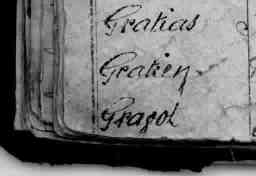 Gratias
Gratien
Grazol